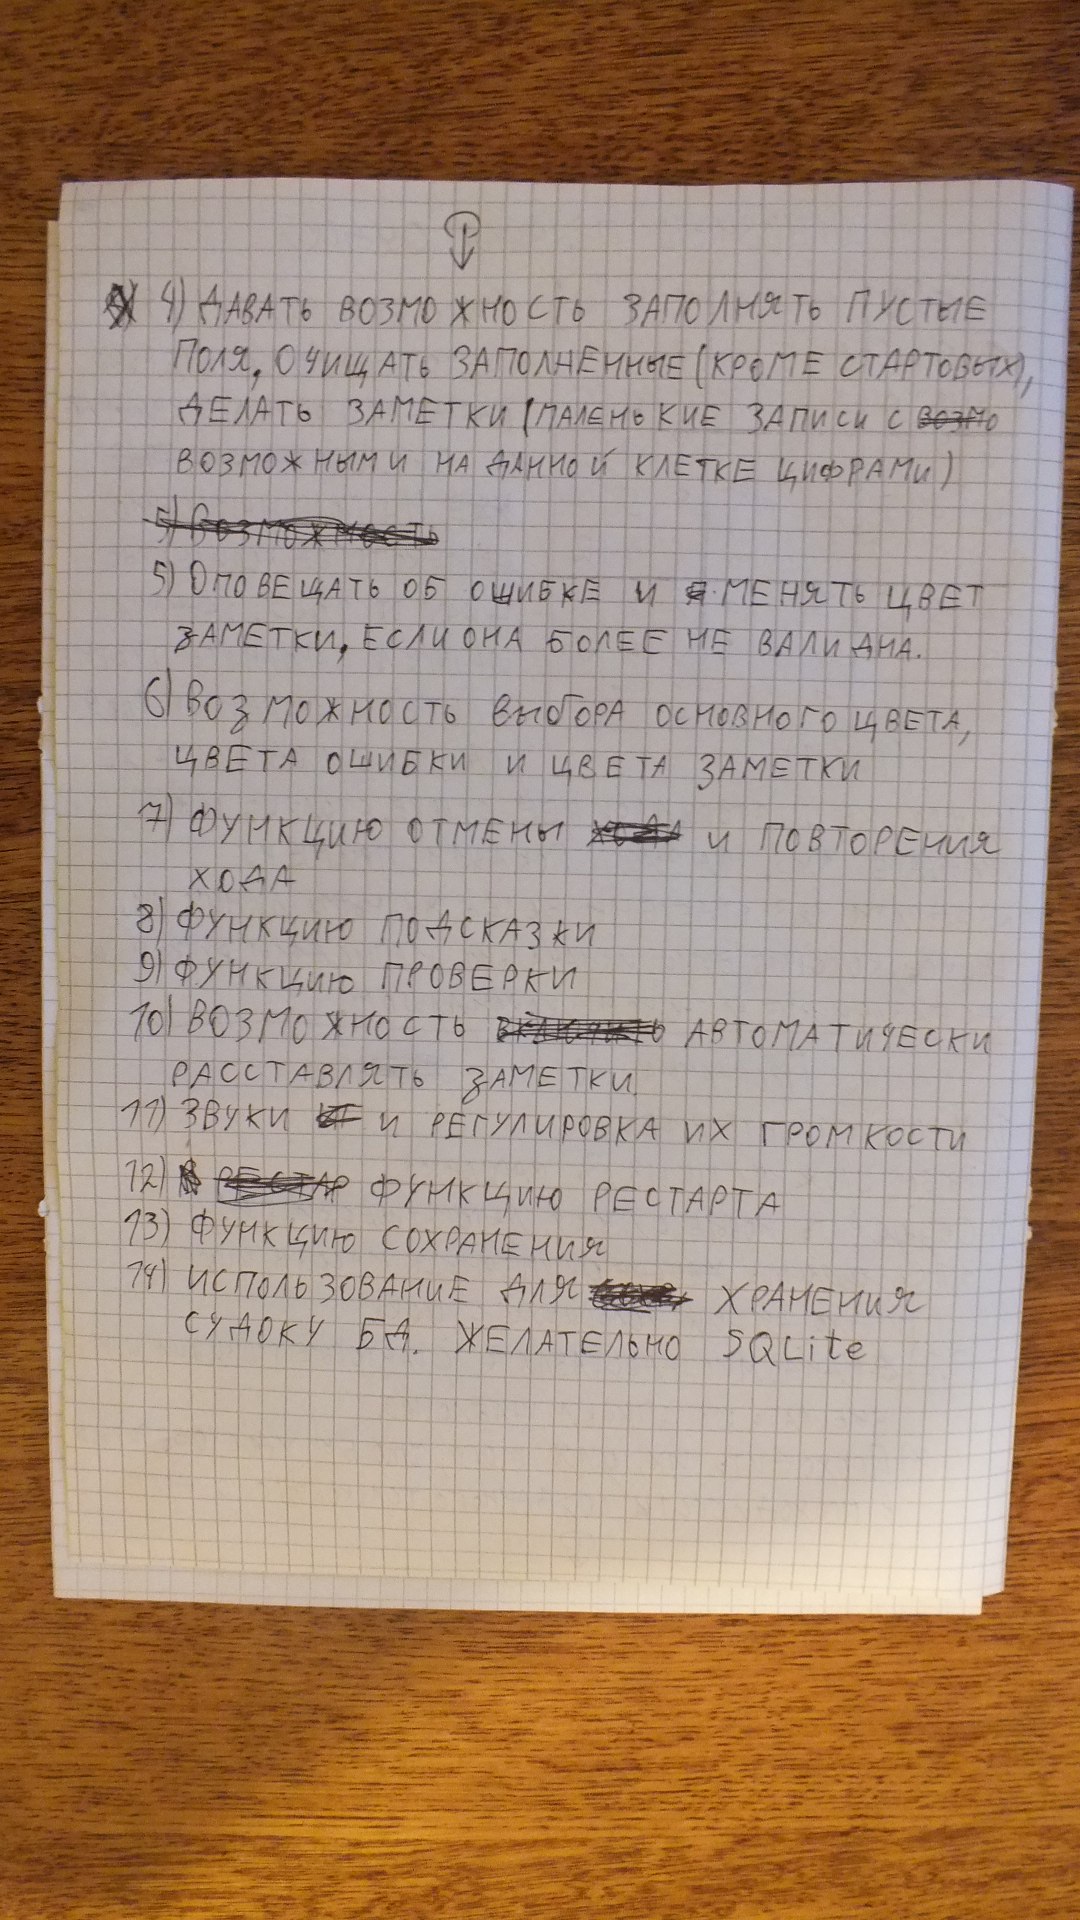 4) ДАВАТЬ ВОЗМОЖНОСТЬ ЗАПОЛНЯТЬ ПУСТЫЕ
ПОЛЯ, ОЧИЩАТЬ ЗАПОЛНЕННЫЕ (КРОМЕ СТАРТОВЫХ),
ДЕЛАТЬ ЗАМЕТКИ (МАЛЕНЬКИЕ ЗАПИСИ С ВОЗМО
ВОЗМОЖНЫМИ НА ДАННОЙ КЛЕТКЕ ЦИФРАМИ)
5) ВОЗМОЖНОСТЬ
5) ОПОВЕЩАТЬ ОБ ОШИБКЕ И МЕНЯТЬ ЦВЕТ
ЗАМЕТКИ, ЕСЛИ ОНА БОЛЕЕ НЕ ВАЛИДНА.
6) ВОЗМОЖНОСТЬ ВЫБОРА ОСНОВНОГО ЦВЕТА,
ЦВЕТА ОШИБКИ И ЦВЕТА ЗАМЕТКИ
7) ФУНКЦИЮ ОТМЕНЫ ХОДА И ПОВТОРЕНИЯ
ХОДА
8) ФУНКЦИЮ ПОДСКАЗКИ
9) ФУНКЦИЮ ПРОВЕРКИ
10) ВОЗМОЖНОСТЬ ВКЛЮЧИТЬ АВТОМАТИЧЕСКИ
РАССТАВЛЯТЬ ЗАМЕТКИ
11) ЗВУКИ И РЕГУЛИРОВКА ИХ ГРОМКОСТИ
12) РЕСТАР ФУНКЦИЮ РЕСТАРТА
13) ФУНКЦИЮ СОХРАНЕНИЯ
14) ИСПОЛЬЗОВАНИЕ ДЛЯ ХРАНЕНИЯ
СУДОКУ БД. ЖЕЛАТЕЛЬНО SQLite